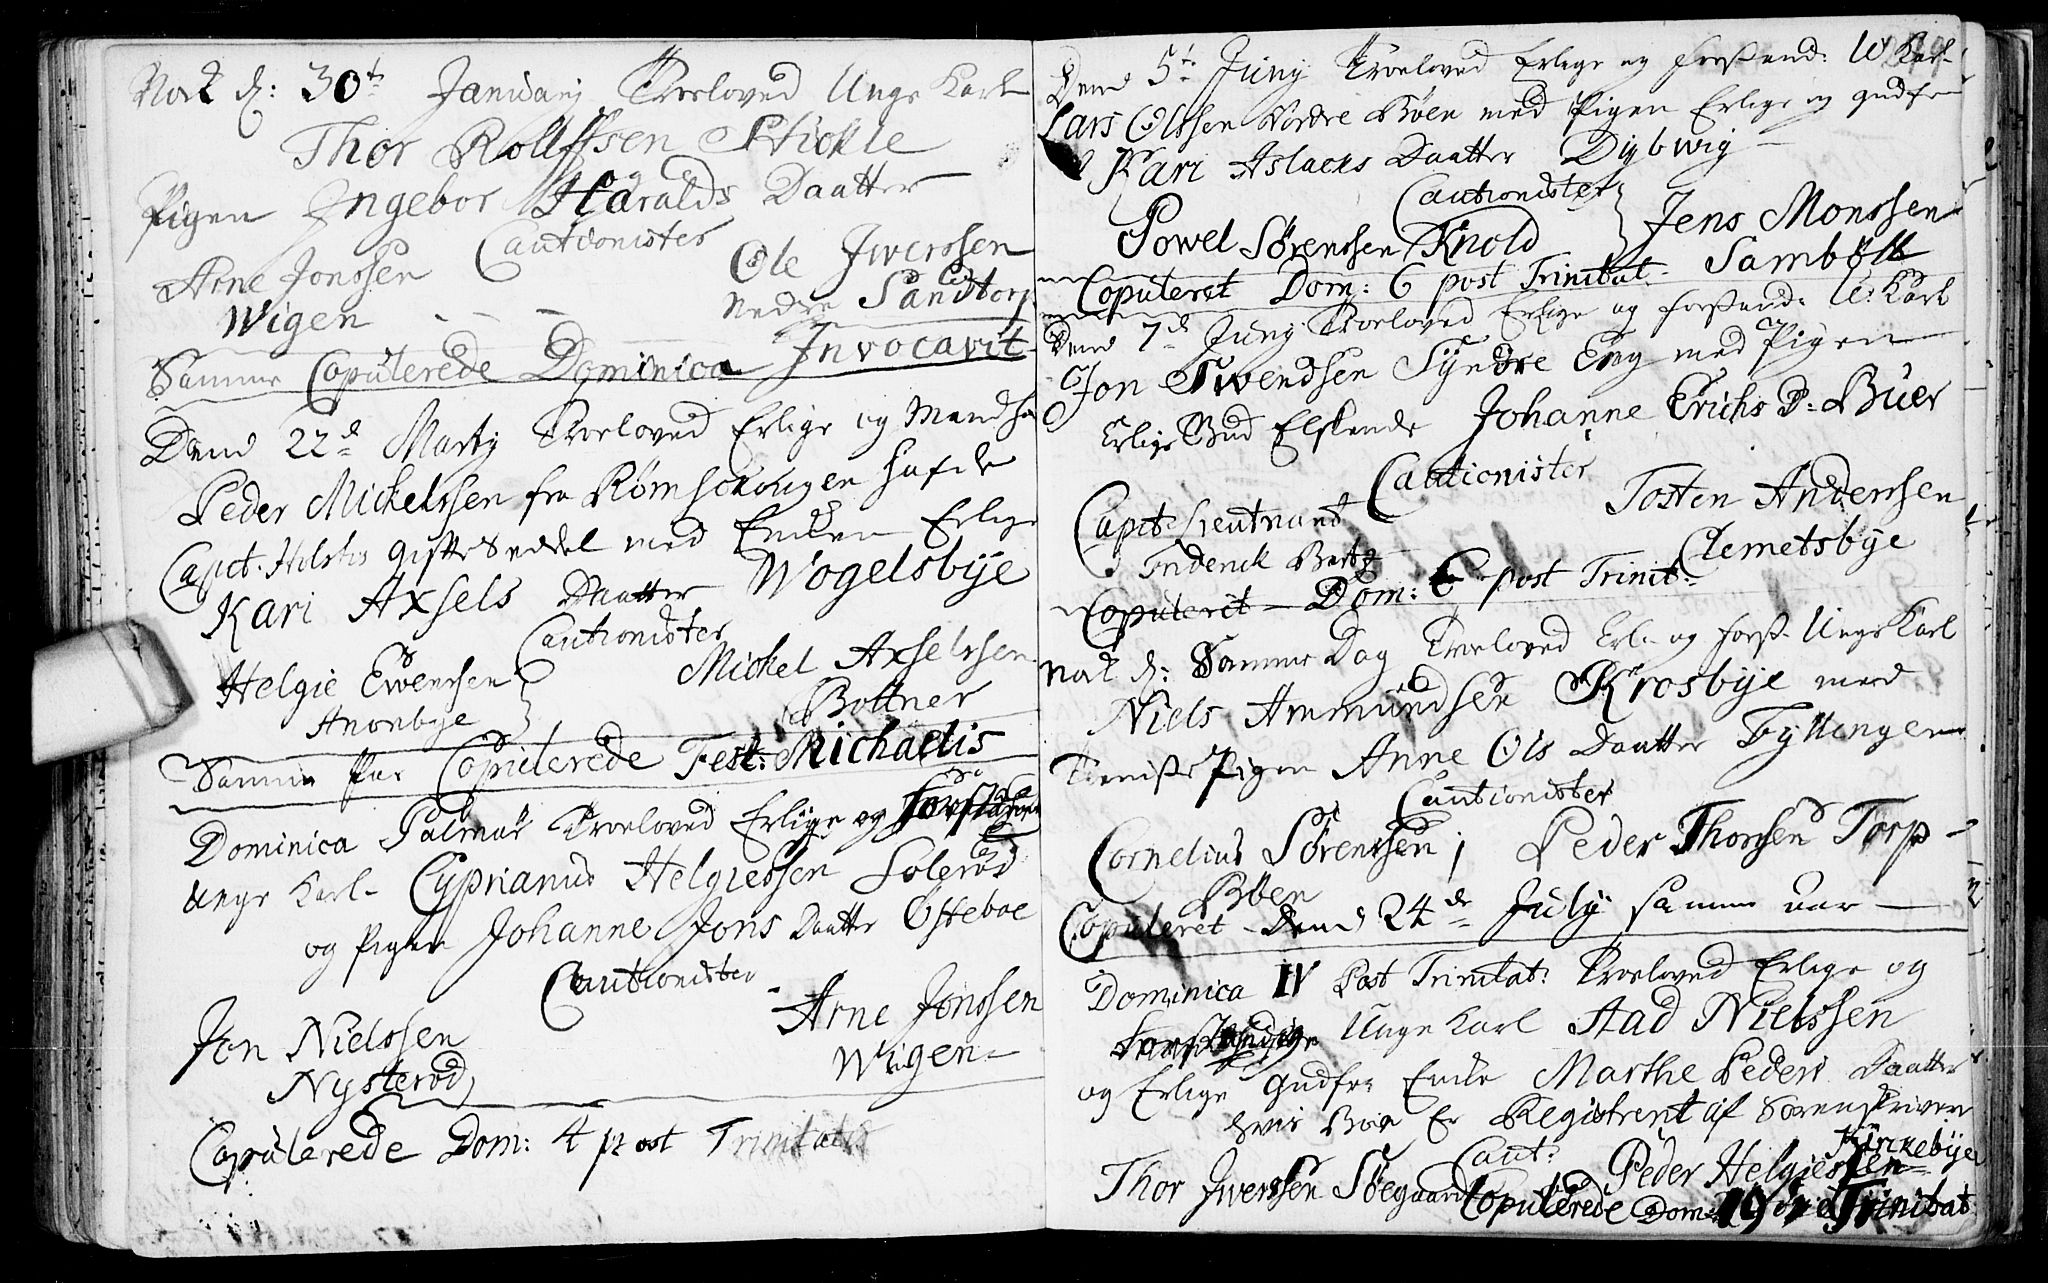 Nok d: 30te January Troeloved Unge Karl
Thor Rolffssen Stickle
Pigen Ingebor Haralds Daatter
Cautionister
Arne Jonssen Ole Jwerssen
Wigen - - - Nedre Sandtorp
Samme Copulerede Dominica Invocavit
Dend 22d Marty Troeloved Erlige og Mandha
Peder Michelssen fra Rømschougen hafde
Capt. Holstes gifte Seddel med Encken Erlige
Kari Axsels Daatter Wogelsbye
Cautionister
Helgie Ewenssen Michel Axselssen
Anonbye Bottner
Samme Par Copulerede Fest: Michaelis
Dominica Palmar Troeloved Erlige og
Unge Karl Cyprianus Helgiessen Solerød
og Pigen Johanne Jons Daatter Østeboe
Cautionister
Jon Nielssen Arne Jonssen
Nysterød Wigen
Copulerede Dom: 4 post Trinitatis
Dend 5te Juny Troeloved Erlige og forstand: U Karl
Lars Olssen Nordre Bøen med Pigen Erlige og gudfr
Kari Aslachs Daatter Dybwig
Cautionister
Powel Sørenssen Knold Jens Monssen
Sambøll
Copuleret Dom: 6 post Trinitat:
Dend 7d Juny Troeloved Erlige og forstand: U: Karl
Jon Swendsen Syndre Eng med Pigen
Erlige Gud Elskende Johanne Erichs D: Buer
Cautionister
Capt Lieutnand Tosten Anderssen
Friderick Clemetsbye
Copuleret Dom: 6 post Trinit:
Nok d: Samme Dag Troeloved Erl. og forst. Unge Karl
Niels Ammundsen Krosbye med
Pigen Anne Ols Daatter Tyllingen
Cautionister
Cornelius Sørenssen; Peder Thorssen Torp
Bøen
Copuleret Dend 24de July samme aar
Dominica IV Post Trinitat: Troeloved Erlige og
Unge Karl Aad Nielssen
og Erlige gudfr: Encke Marthe Peders Daatter
hvis Boe Er Registrert af Sorenskriver
Cant: Kirkebye
Thor Jwerssen Søegaard Peder Helgiessen
Copulerede Dom: 19 Trinitat: